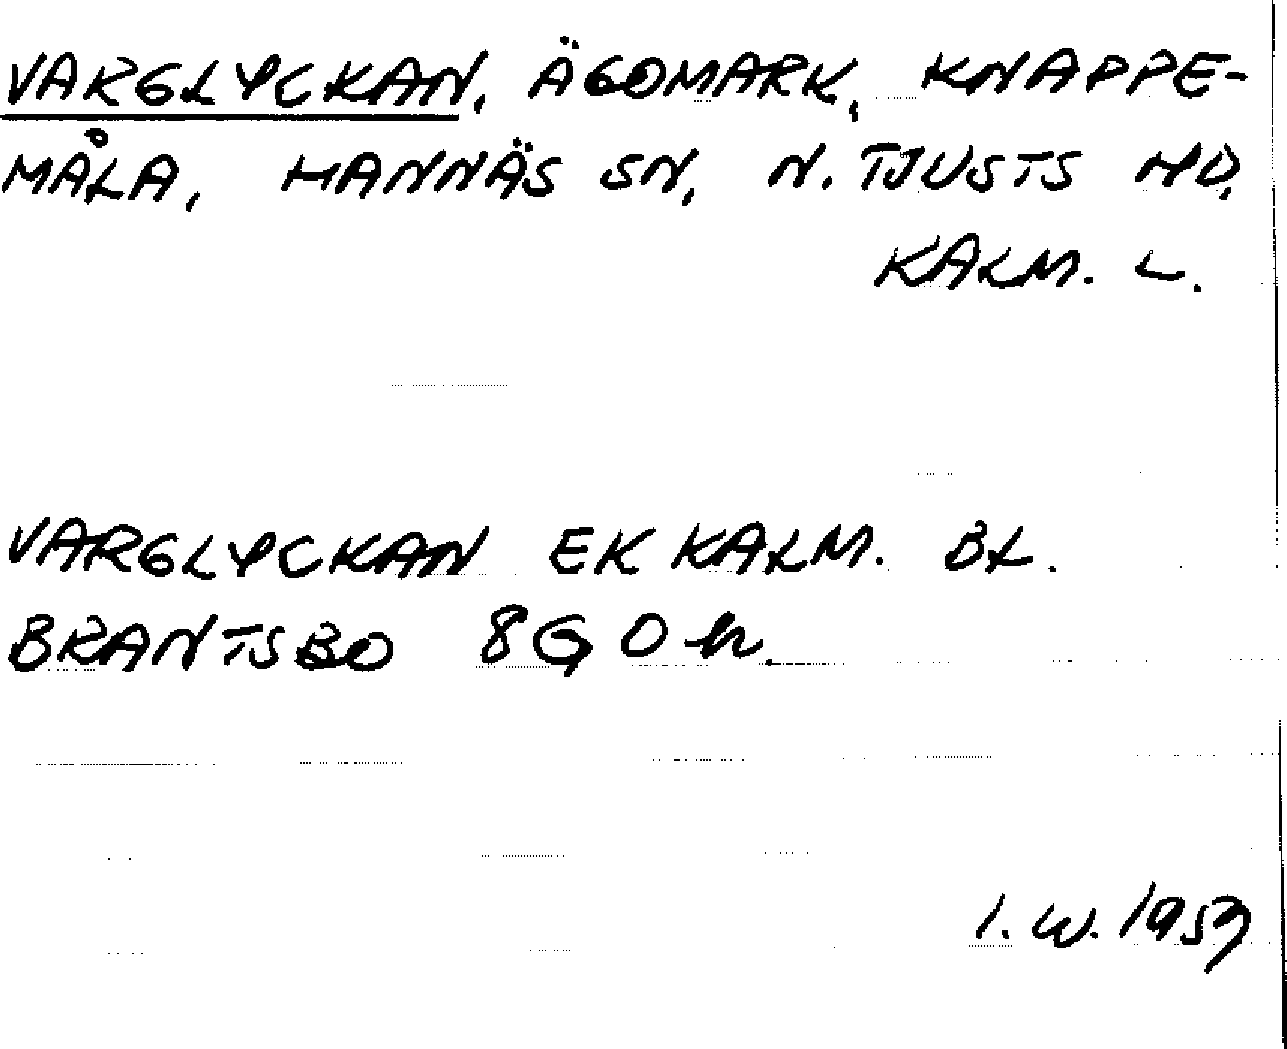 VARGLYCKAN, ÄGOMARK, KNAPPE-
MÅLA, HANNÄS SN, N. TJUSTS HD,
KALM. L.
VARGLYCKAN EK KALM. BL.
BRANTSBO 8G0h.
I. W. 1959